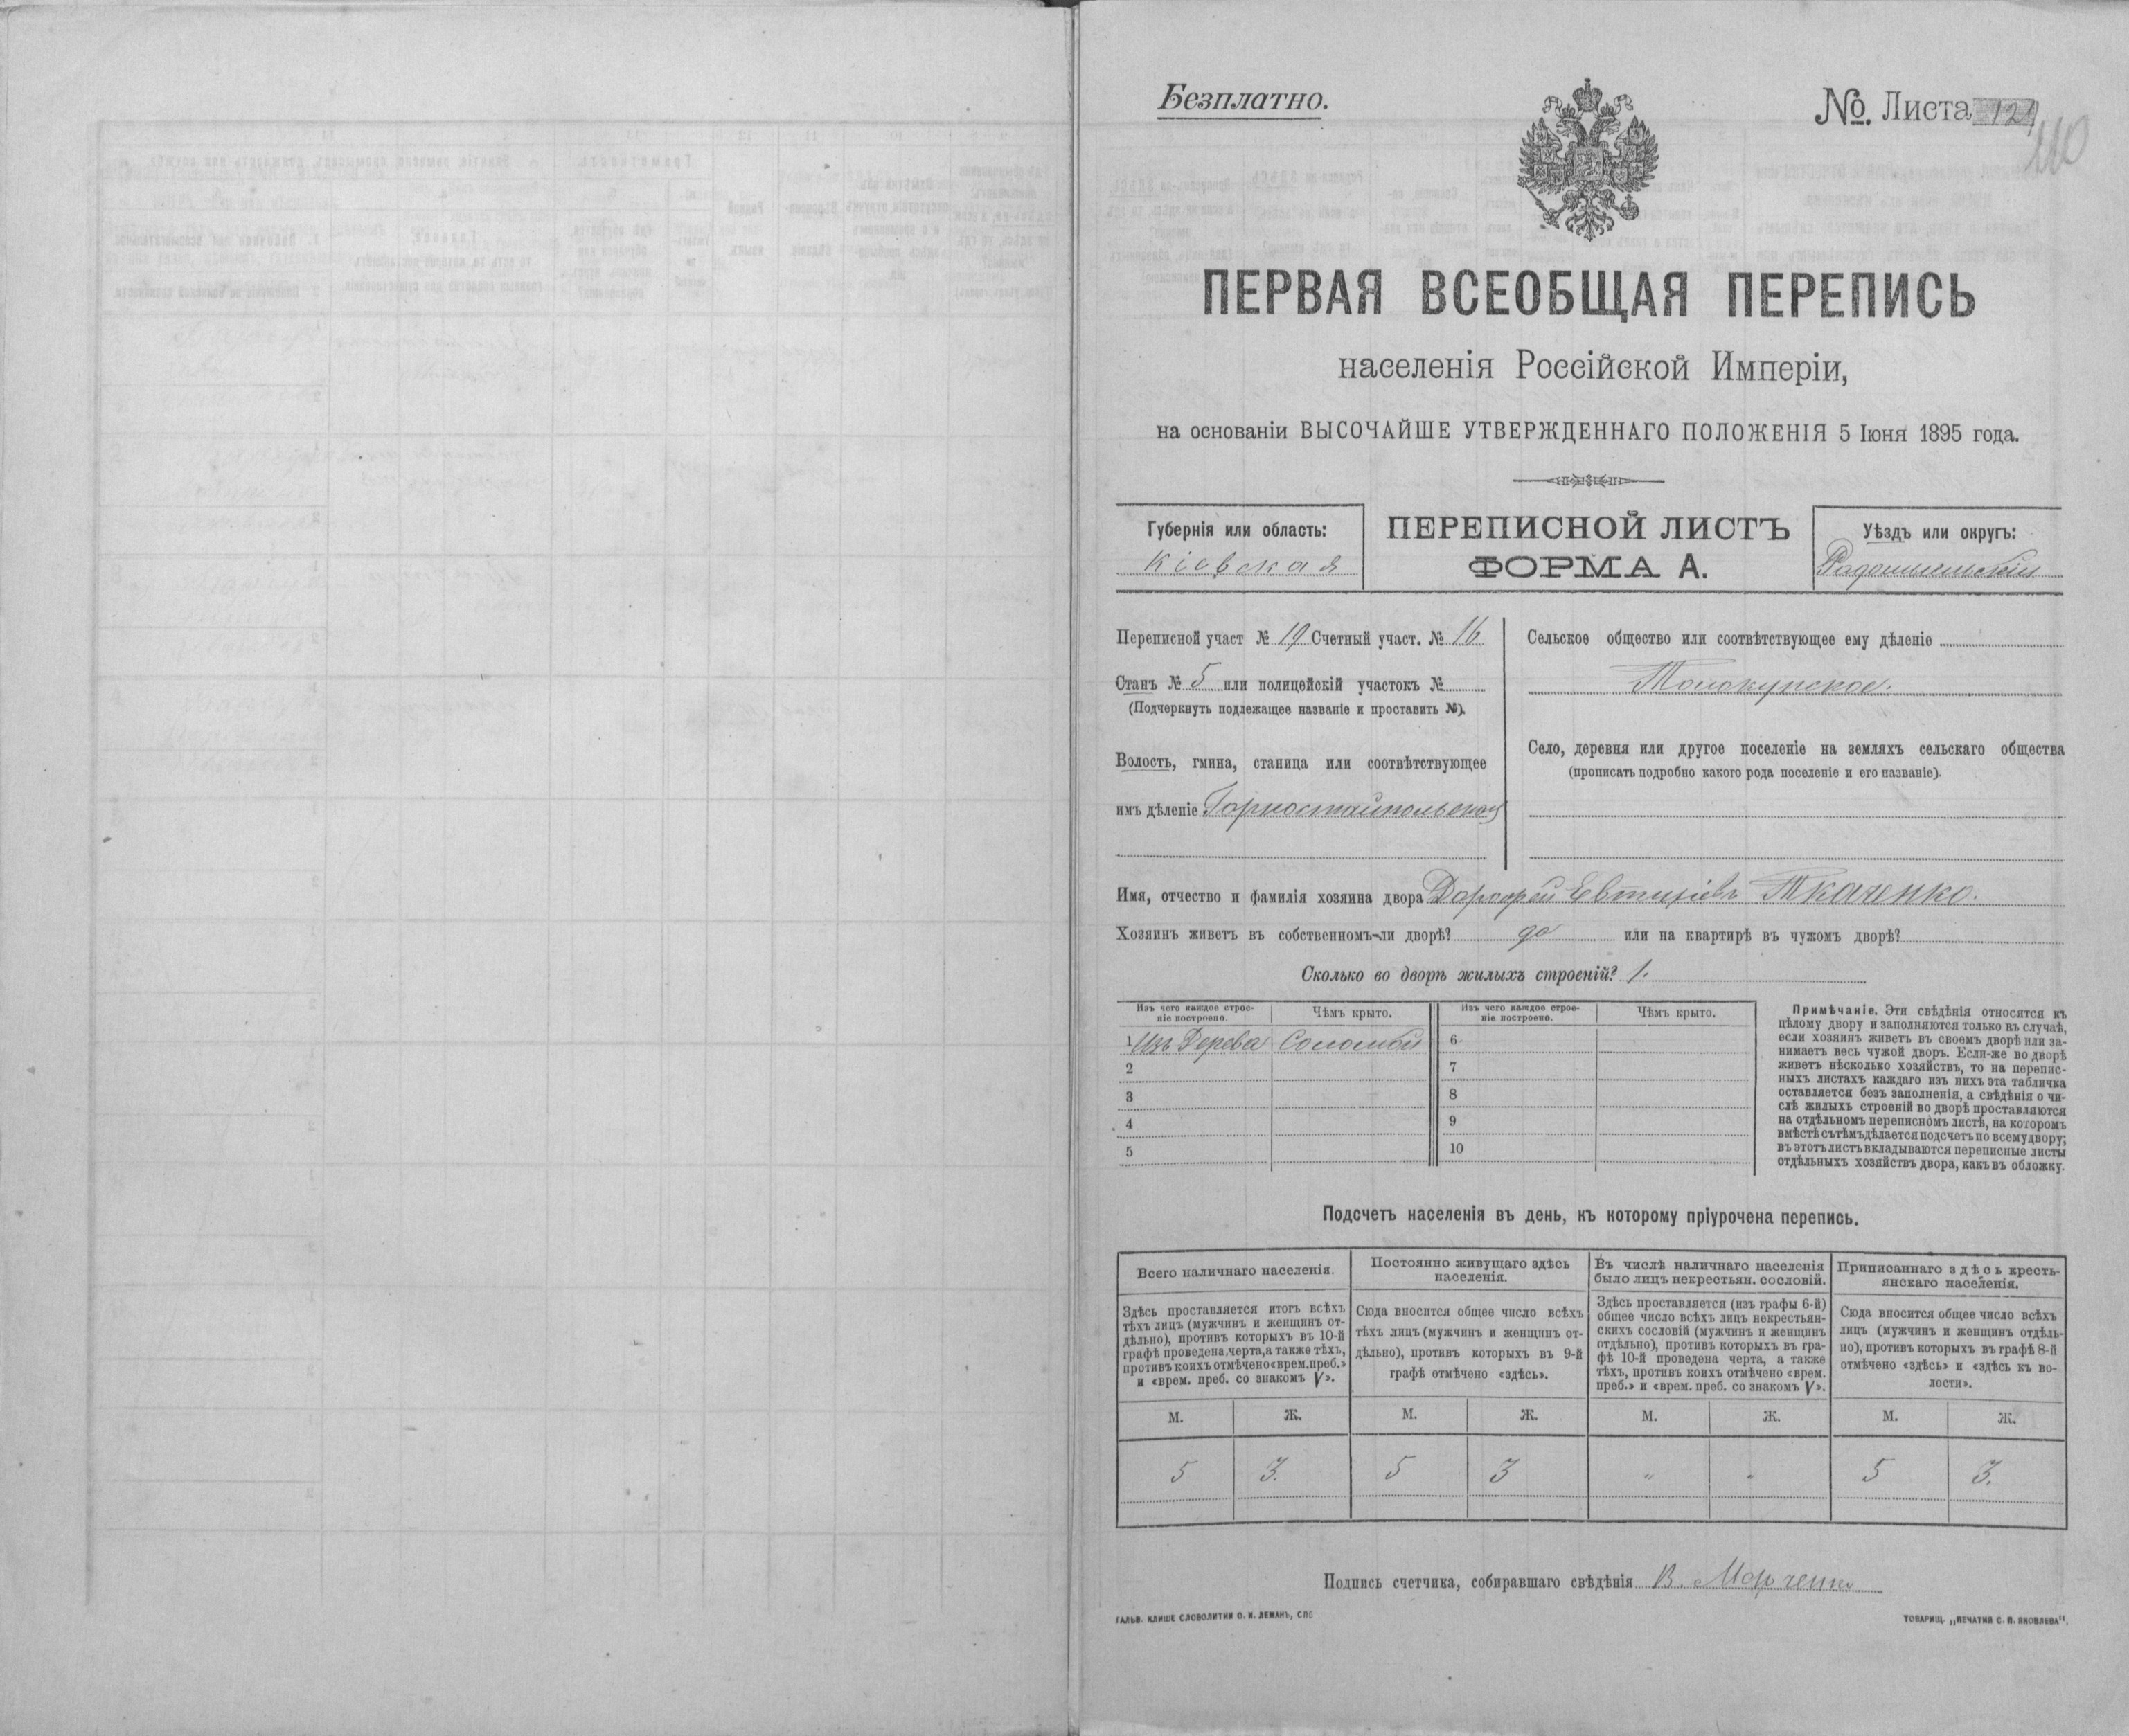 Безплатно.
№. Листа 121
110
ПЕРВАЯ ВСЕОБЩАЯ ПЕРЕПИСЬ
населенія Россійской Имперіи,
на основаніи ВЫСОЧАЙШЕ УТВЕРЖДЕННАГО ПОЛОЖЕНІЯ 5 Іюня 1895 года.
Губернія или область:
Кіевская
ПЕРЕПИСНОЙ ЛИСТЪ
ФОРМА А.
Уѣздъ или округъ:
Радомысльскій
Переписной участ № 19 Счетный участ. № 16
Станъ № 5 или полицейскій участокъ №
(Подчеркнуть подлежащее названіе и проставить №).
Волость, гмина, станица или соотвѣтствующее
имъ дѣленіе Горностайпольская
Сельское общество или соотвѣтствующее ему дѣленіе
Толокунское.
Село, деревня или другое поселеніе на земляхъ сельскаго общества
(прописать подробно какого рода поселеніе и его названіе).
Имя, отчество и фамилія хозяина двора Дорофей Евтихіевъ Ткаченко.
Хозяинъ живетъ въ собственномъ-ли дворѣ? да или на квартирѣ въ чужомъ дворѣ?
Сколько во дворѣ жилыхъ строеній? 1.
Изъ чего каждое строе-
ніе построено.
Чѣмъ крыто.
Изъ чего каждое строе-
ніе построено.
Чѣмъ крыто.
1 Изъ Дерева Соломой 6
2 7
3 8
4 9
5 10
Примѣчаніе. Эти свѣдѣнія относятся къ
цѣлому двору и заполняются только въ случаѣ,
если хозяинъ живетъ въ своемъ дворѣ или за-
нимаетъ весь чужой дворъ. Если-же во дворѣ
живетъ нѣсколько хозяйствъ, то на перепис-
ныхъ листахъ каждаго изъ нихъ эта табличка
оставляется безъ заполненія, а свѣдѣнія о чи-
слѣ жилыхъ строеній во дворѣ проставляются
на отдѣльномъ переписномъ листѣ, на которомъ
вмѣстѣ съ тѣмъ дѣлается подсчетъ по всему двору;
въ этотъ листъ вкладываются переписные листы
отдѣльныхъ хозяйствъ двора, какъ въ обложку.
Подсчетъ населенія въ день, къ которому пріурочена перепись.
Всего наличнаго населенія.
Здѣсь проставляется итогъ всѣхъ
тѣхъ лицъ (мужчинъ и женщинъ от-
дѣльно), противъ которыхъ въ 10-й
графѣ проведена черта, а также тѣхъ,
противъ коихъ отмѣчено «врем. преб.»
и «врем. преб. со знакомъ V».
Постоянно живущаго здѣсь
населенія.
Сюда вносится общее число всѣхъ
тѣхъ лицъ (мужчинъ и женщинъ от-
дѣльно), противъ которыхъ въ 9-й
графѣ отмѣчено «здѣсь».
Въ числѣ наличнаго населенія
было лицъ некрестьян. сословій.
Здѣсь проставляется (изъ графы 6-й)
общее число всѣхъ лицъ некрестьян-
скихъ сословій (мужчинъ и женщинъ
отдѣльно), противъ которыхъ въ гра-
фѣ 10-й проведена черта, а также
тѣхъ, противъ коихъ отмѣчено «врем.
преб.» и «врем. преб. со знакомъ V».
Приписаннаго здѣсь кресть-
янскаго населенія.
Сюда вносится общее число всѣхъ
лицъ (мужчинъ и женщинъ отдѣль-
но), противъ которыхъ въ графѣ 8-й
отмѣчено «здѣсь» и «здѣсь къ во-
лости».
М. Ж. М. Ж. М. Ж. М. Ж.
5 3. 5 3 " " 5 3.
Подпись счетчика, собиравшаго свѣдѣнія В. Марченко
ГАЛЬВ. КЛИШЕ СЛОВОЛИТНИ О. И. ЛЕМАНЪ, СПБ
ТОВАРИЩ. „ПЕЧАТНЯ С. П. ЯКОВЛЕВА".